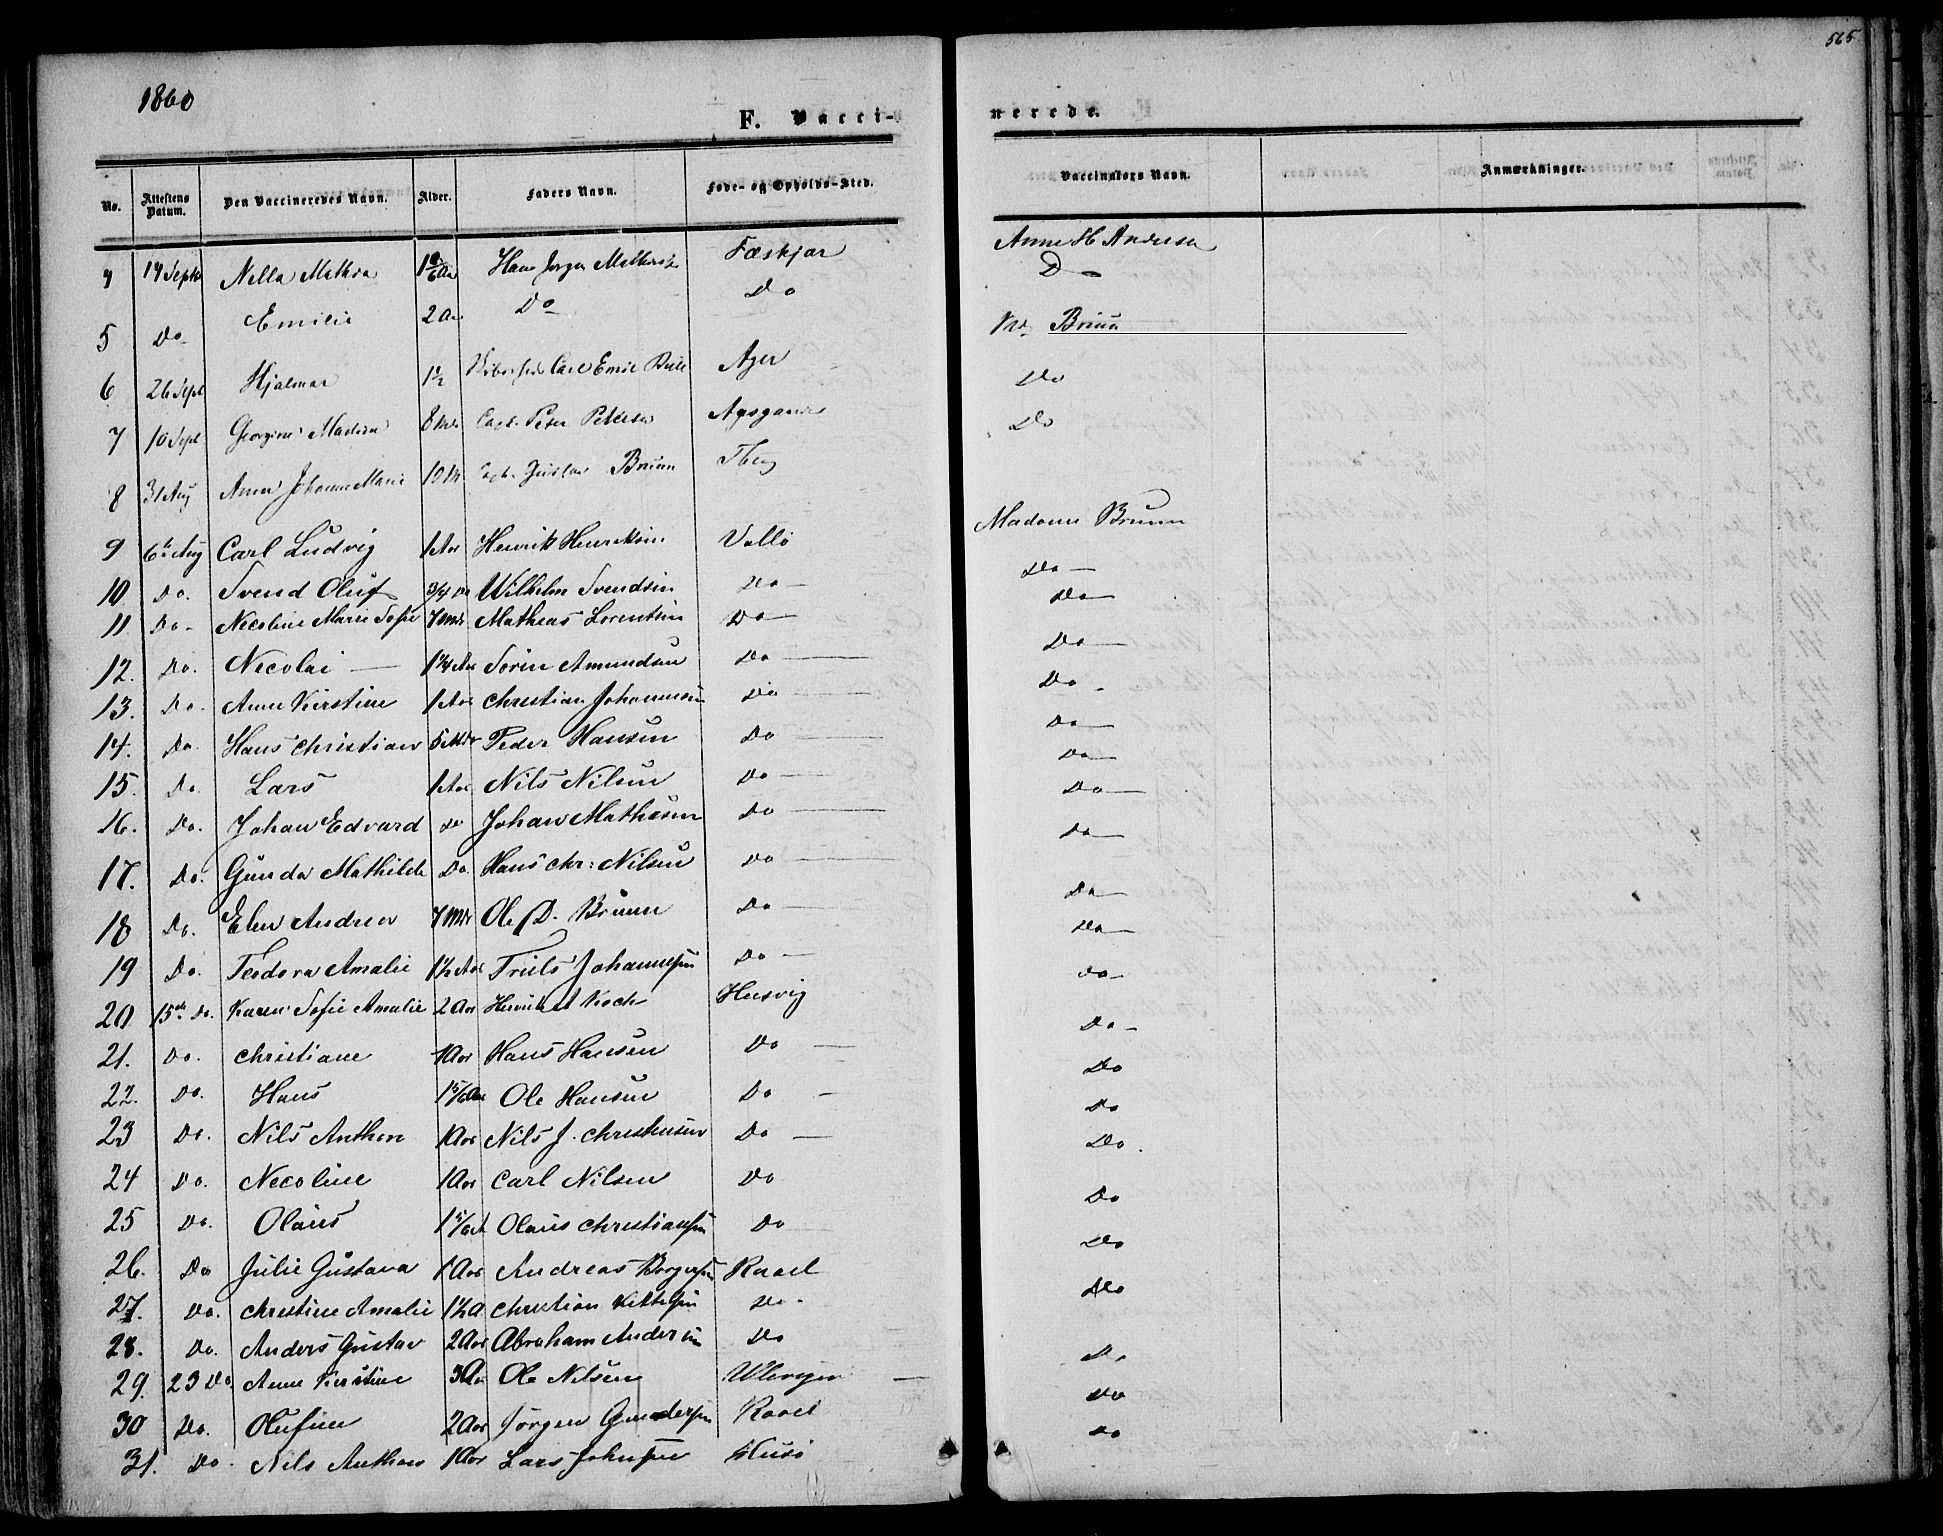 1860
565
F. Vacci- nerede.
No. Attestens Datum. Den Vaccineredes Navn. Alder. Faders Navn. Føde- og Opholds-Sted. Vaccinators Navn. Anmærkninger.
4 14 Sept Nella Mathea Hans Jørgen Fæskjær Anne H Andersen
5 Do Emilie 2 Aar Do Do Do
6 26 Sept Hjalmar 1½ Carl Emil Brun
7 10 Sept Georgine 8 Md Capt. Peter Petersen Do
8 31 Aug Anne Johanne Marie 10 M Capt. Gustav Bruun Tbeg Do
9 6te Aug Carl Ludvig 1 Aar Henrik Henriksen Vallö Madame Bruun
10. Do. Svend Oluf 3/4 Wilhelm Svendsen Do Do
11. Do Necoline Marie Sofie 7 Mdr Mathias Lorentsen Do Do
12. Do. Necolai 1¼ Aar Sørin Amundsen Do Do
13. Do. Anne Kirstine 1 Aar Christian Johannesen Do Do
14. Do. Hans Christian 5 Mdr Peder Hansen Do Do
15. Do. Lars 1 Aar Nils Nilsen Do Do
16. Do. Johan Edvard Do Johan Mathisen Do Do
17. Do. Gunda Mathilde Do. Hans Chr: Nilsen Do Do
18 Do. Elen Andrea 7 Mdr Ole D. Bruun Do Do
19 Do. Teodora Amalie 1½ Aar Truls Johannesen Do Do
20 15de Do. Karen Sofie Amalie 2 Aar Henrik A Koch Husvig Do
21. Do. Christiane 1 Aar Hans Hansen Do Do
22. Do. Hans Ole Hansen Do Do
23 Do. Nils Anthon 1 Aar Nils J. Christensen Do Do
24 Do. Necoline 1 Aar Carl Nilsen Do Do.
25 Do. Olaus Olaus Christiansen Do Do
26. Do Julie Gustava 1 Aar Andreas Borgersen Rael Do
27. Do. Christine Amalie 1½ A Christian Kittelsen Do. Do
28. Do. Anders Gustav 2 Aar Abraham Andersen Do Do
29. 23 Do. Anne Kirstine 3 Aar Ole Nilsen Do
30 Do. Olufine 2 Aar Jörgen Gundersen Rael Do
31. Do. Nils Anthon 1 Aar Lars Johnsen Husö Do